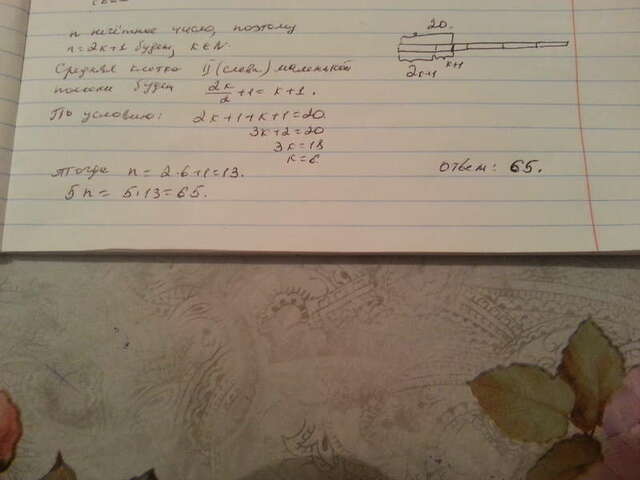 n нечётное число, поэтому
n=2k+1 будем, k∈N.
Средняя клетка II (слева) маленькой
полоски будет 2k/2 +1 = k+1.
По условию: 2k+1+k+1=20.
3k+2=20
3k=18
k=6
Тогда n = 2·6+1=13.
5n = 5·13=65.
20.
2k+1
k+1
Ответ: 65.